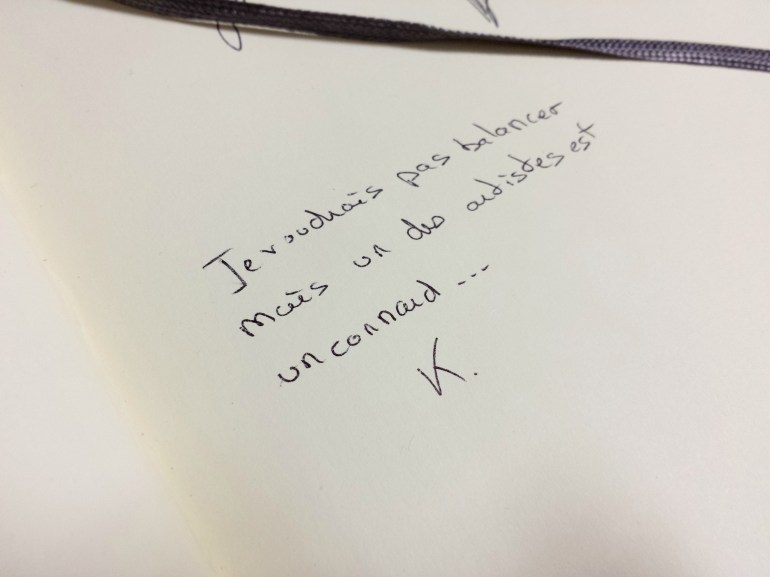 Je voudrais pas balancer
mais un des artistes est
un connard ...
K.